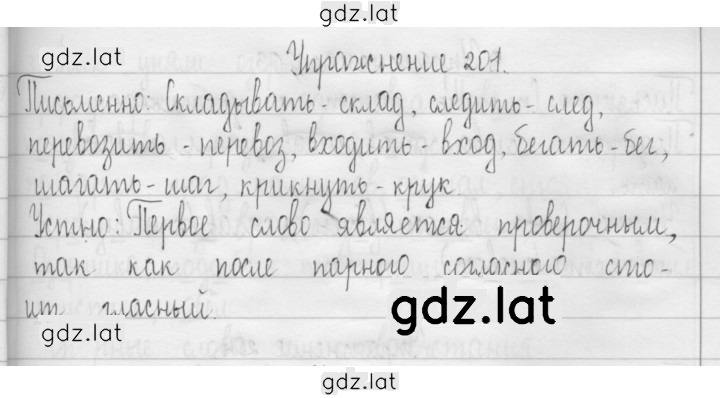 gdz.lat
gdz.lat
Упражнение 201.
Письменно: Складывать - склад, следить - след,
перевозить - перевоз, входить - вход, бегать - бег,
шагать - шаг, крикнуть - крук
Устно: Первое слово является проверочным,
так как после парного согласного сто-
ит гласный.
gdz.lat
gdz.lat
gdz.lat